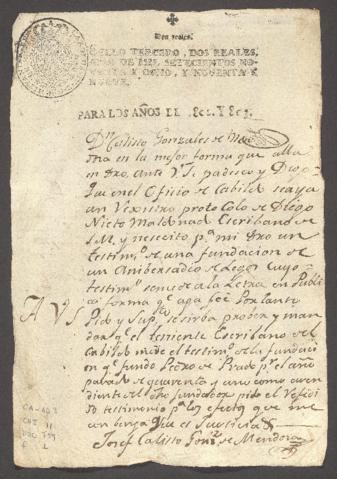 Dos reales.
SELLO TERCERO, DOS REALES,
AÑOS DE MIL SETECIENTOS NO-
VENTA Y OCHO, Y NOVENTA Y
NUEVE.
PARA LOS AÑOS DE 1802. Y 803.
Dn Calisto Gonzales de Men
dosa en la mejor forma que alla
en dro. Ante V.S. padesco y Digo
Que en el Oficio de Cabildo se aya
un Rexistro protocolo de Diego
Nieto Maldonad Escribano de
S.M. y nescecito pa mi dro un
testimo de una fundacion de
un Anibersario de Legos cuyo
testimo a la Letra en Publi
ca forma qe aga feé Por tanto
A V.S Pido y Supco se sirba probeer y man
dar qe el teniente Escribano del
Cabildo me de el testimo de la fundaci
on qe fundo Pedro de Prado pr el año
pasado de quarenta y uno como
diente de dho fundador pido el
testimonio pa los efectos que me
combenga qe es Justicia
Josef Calisto Gonz. de Mendoza
CA-AD3
11
L